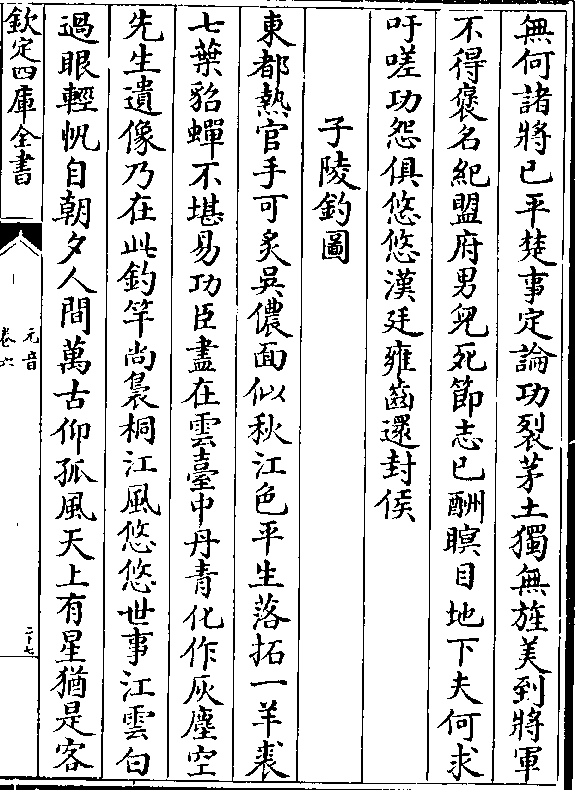 無何諸將已平楚事定論功裂茅土獨無旌美到將軍
不得褒名紀盟府男兒死節志已酬瞑目地下夫何求
吁嗟功怨俱悠悠漢廷雍齒還封侯
子陵釣圖
東都熱官手可炙吳儂面似秋江色平生落拓一羊裘
七葉貂蟬不堪易功臣盡在雲臺中丹青化作灰塵空
先生遺像乃在此釣竿尚裊桐江風悠悠世事江雲白
過眼輕帆自朝夕人間萬古仰孤風天上有星猶是客
欽定四庫全書
元音
卷六
二十七